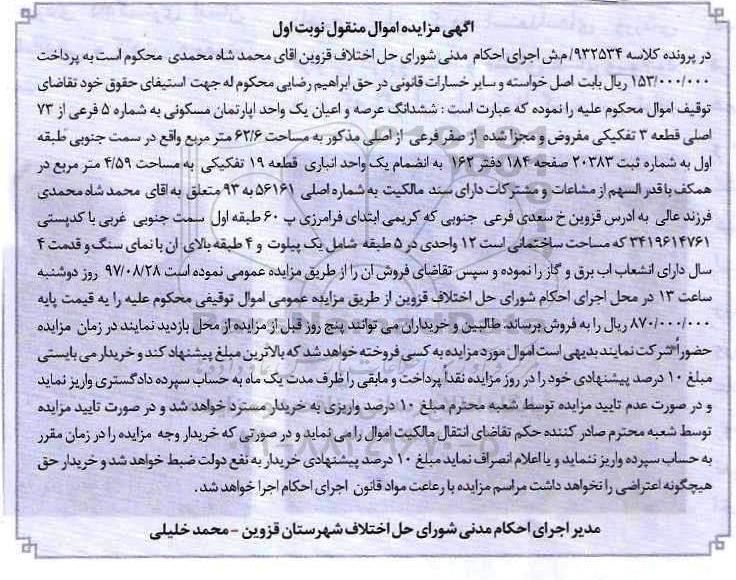 آگهی مزایده اموال منقول نوبت اول
در پرونده کلاسه ۹۳۲۵۳۴/م.ش اجرای احکام مدنی شورای حل اختلاف قزوین آقای محمد شاه محمدی محکوم است به پرداخت
۱۵۳/۰۰۰/۰۰۰ ریال بابت اصل خواسته و سایر خسارات قانونی در حق ابراهیم رضایی محکوم له جهت استیفای حقوق خود تقاضای
توقیف اموال محکوم علیه را نموده که عبارت است : ششدانگ عرصه و اعیان یک واحد اپارتمان مسکونی به شماره ۵ فرعی از ۷۳
اصلی قطعه ۳ تفکیکی مفروض و مجزا شده از صفر فرعی از اصلی مذکور به مساحت ۶۲/۶ متر مربع واقع در سمت جنوبی طبقه
اول به شماره ثبت ۲۰۳۸۳ صفحه ۱۸۴ دفتر ۱۶۲ به انضمام یک واحد انباری قطعه ۱۹ تفکیکی به مساحت ۴/۵۹ متر مربع در
همکف با قدر السهم از مشاعات و مشترکات دارای سند مالکیت به شماره اصلی ۵۶۱۶۱ به ۹۳ متعلق به اقای محمد شاه محمدی
فرزند عالی به ادرس قزوین خ سعدی فرعی جنوبی که کریمی ابتدای فرامرزی پ ۶۰ طبقه اول سمت جنوبی غربی با کدپستی
۳۴۱۹۶۱۴۷۶۱ که مساحت ساختمانی است ۱۲ واحدی در ۵ طبقه شامل یک پیلوت و ۴ طبقه بالای ان با نمای سنگ و قدمت ۴
سال دارای انشعاب اب برق و گاز را نموده و سپس تقاضای فروش ان را از طریق مزایده عمومی نموده است ۹۷/۰۸/۲۸ روز دوشنبه
ساعت ۱۳ در محل اجرای احکام شورای حل اختلاف قزوین از طریق مزایده عمومی اموال توقیفی محکوم علیه را به قیمت پایه
۸۷۰/۰۰۰/۰۰۰ ریال را به فروش برساند. طالبین و خریداران می توانند پنج روز قبل از مزایده از محل بازدید نمایند در زمان مزایده
حضوراً شرکت نمایند بدیهی است اموال مورد مزایده به کسی فروخته خواهد شد که بالاترین مبلغ پیشنهاد کند و خریدار می بایستی
مبلغ ۱۰ درصد پیشنهادی خود را در روز مزایده نقداً پرداخت و مابقی را ظرف مدت یک ماه به حساب سپرده دادگستری واریز نماید
و در صورت عدم تایید مزایده توسط شعبه محترم مبلغ ۱۰ درصد واریزی به خریدار مسترد خواهد شد و در صورت تایید مزایده
توسط شعبه محترم صادر کننده حکم تقاضای انتقال مالکیت اموال را می نماید و در صورتی که خریدار وجه مزایده را در زمان مقرر
به حساب سپرده واریز ننماید و یا اعلام انصراف نماید مبلغ ۱۰ درصد پیشنهادی خریدار به نفع دولت ضبط خواهد شد و خریدار حق
هیچگونه اعتراضی را نخواهد داشت مراسم مزایده با رعاعت مواد قانون اجرای احکام اجرا خواهد شد.
مدیر اجرای احکام مدنی شورای حل اختلاف شهرستان قزوین - محمد خلیلی